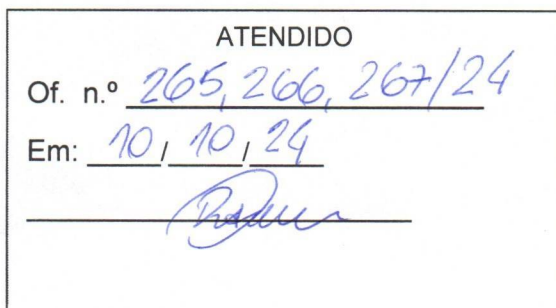 ATENDIDO
Of. n.º 265, 266, 267/24
Em: 10/10/24